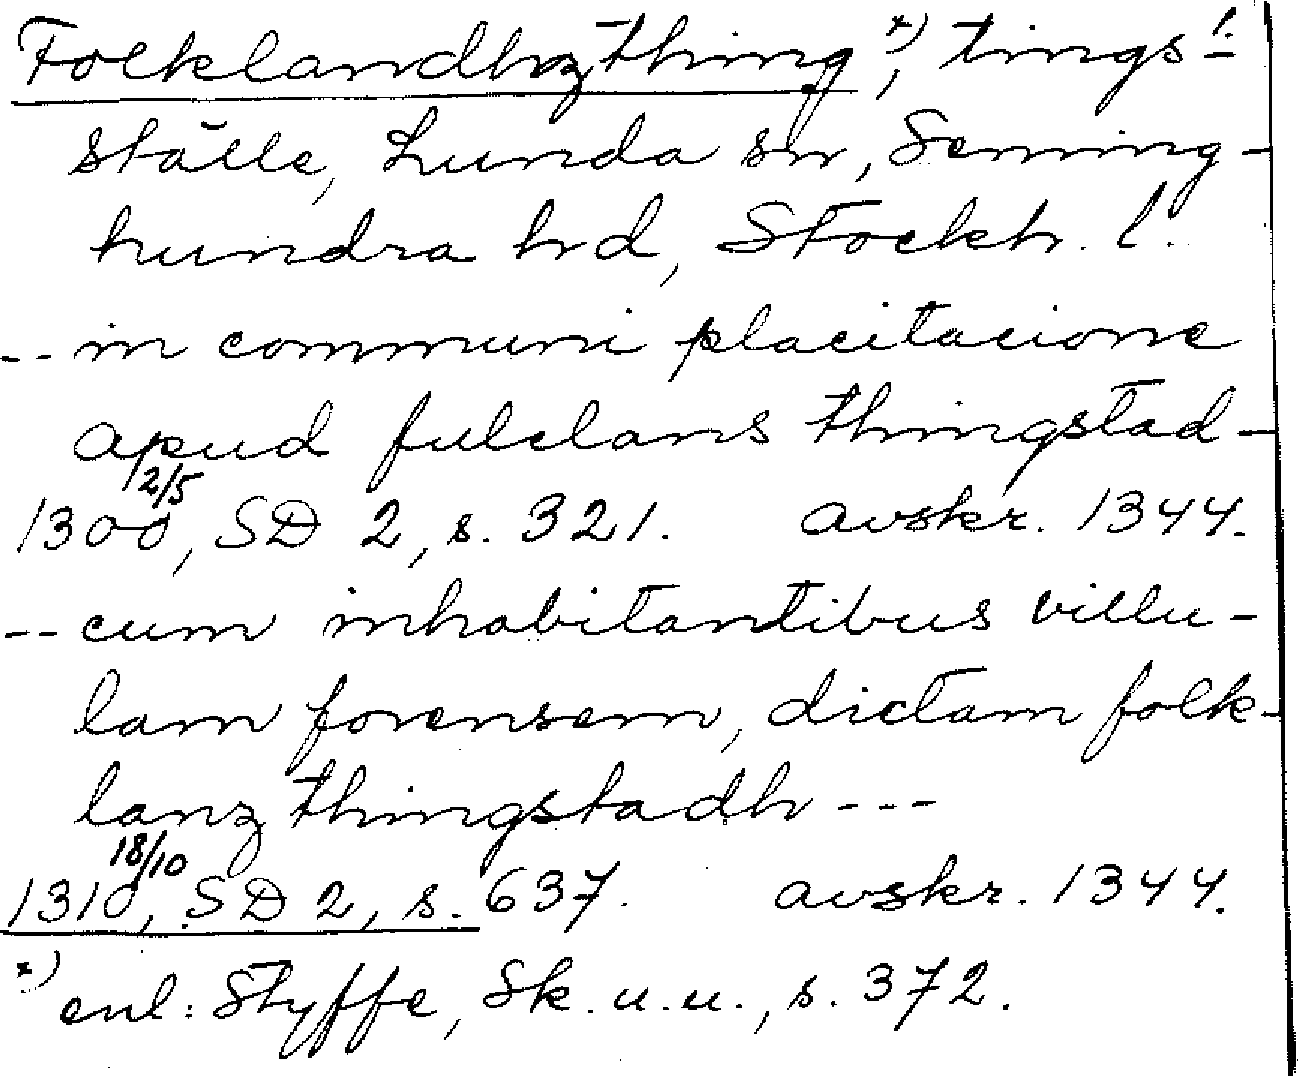 Folklandhzthing *), tings-
ställe, Lunda sn, Seming-
hundra hd, Stockh. l.
-- in communi placitacione
apud fulclans thingstad-
12/5
1300, SD 2, s. 321. avskr. 1344.
-- cum inhabitantibus villu-
lam forensem, dictam folk-
lanz thingstadh ---
18/10
1310, SD 2, s. 637. avskr. 1344.
*) enl: Styffe, Sk. u. u., s. 372.